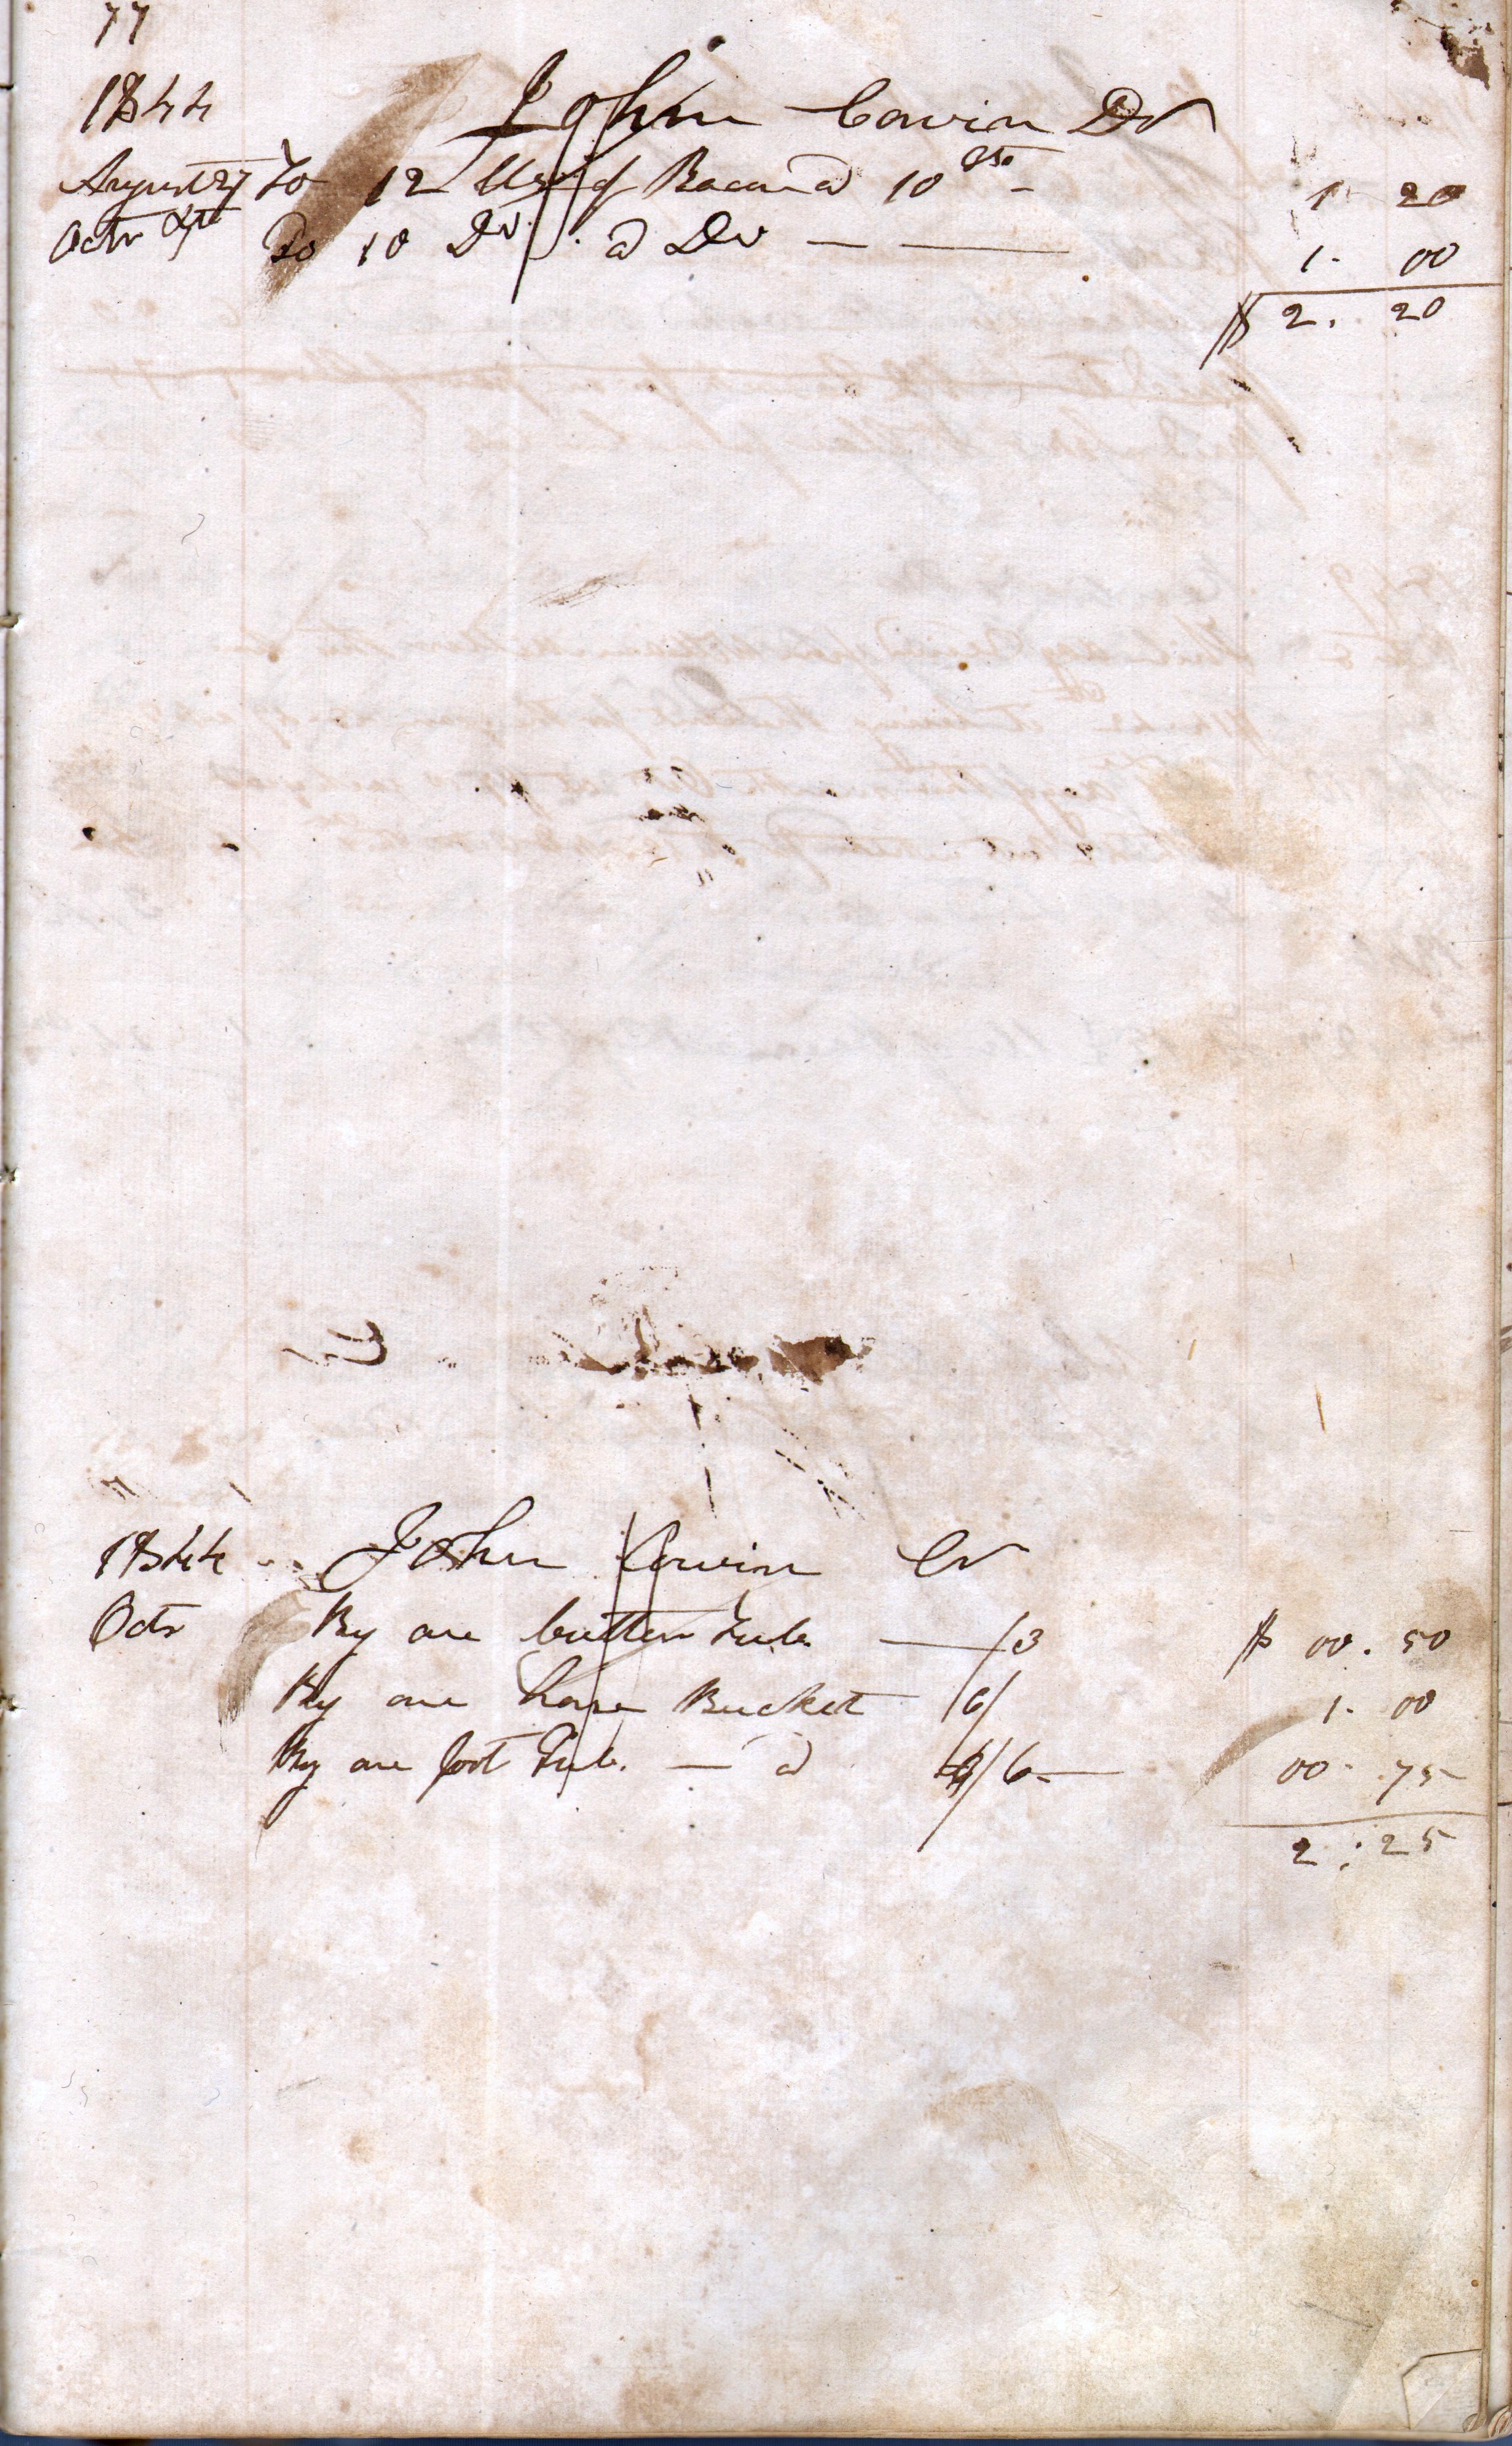 77
1844 John Corwin Dr
August 27 To 12 lbs of Bacon @ 10 cts - 1 20
Octr To 10 Do. @ Do — — 1. 00
$ 2. 20
1844 John Corwin Cr
Octr By one butter Tub — /3 $ 00. 50
By one horse Bucket 6/ 1. 00
By one foot Tub. — @ 4/6 — 00. 75
2. 25